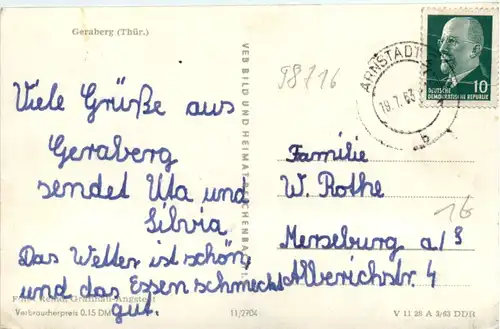 Geraberg (Thür.)
Viele Grüße aus
Geraberg
sendet Uta und
Silvia.
Das Wetter ist schön,
und das Essen schmeckt
gut.
Verbraucherpreis 0.15 DM
11/2704
VEB BILD UND HEIMAT REICHENBACH
98/16
ARNSTADT
19.7.63
b
10
DEUTSCHE
DEMOKRATISCHE REPUBLIK
Familie
W. Rothe
16
Merseburg a/S
Alberichstr. 4
V 11 28 A 3/63 DDR